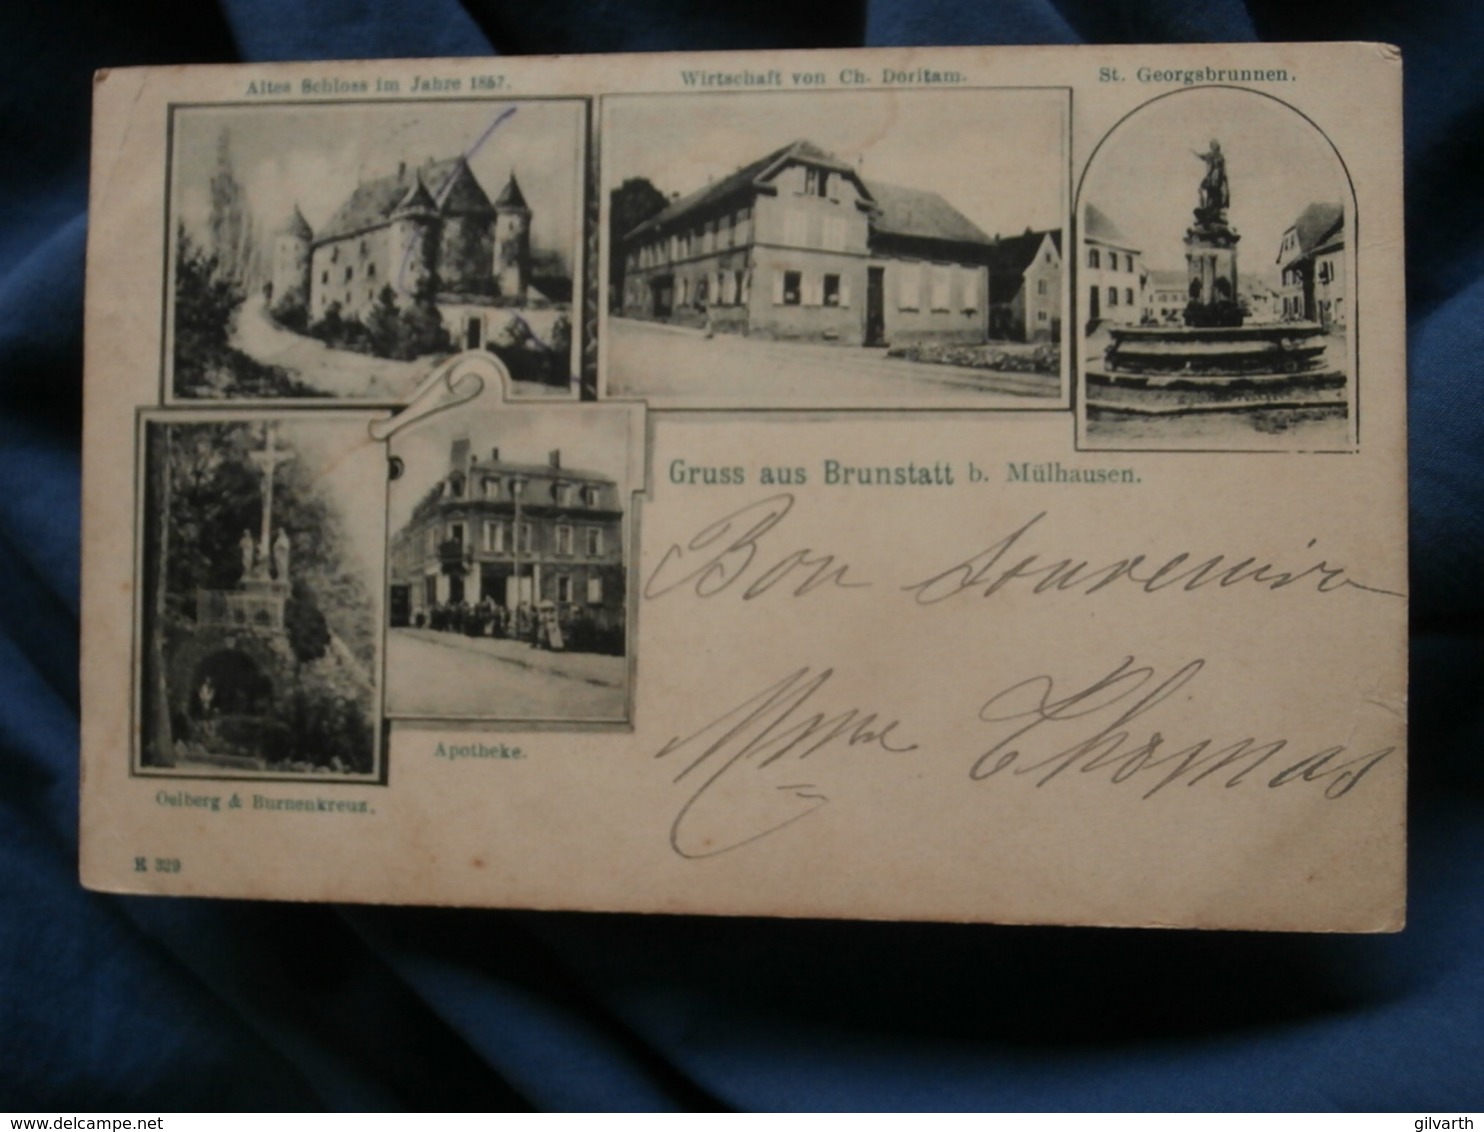 Altes Schloss im Jahre 1857.
Wirtschaft von Ch. Doritam.
St. Georgsbrunnen.
Gruss aus Brunstatt b. Mülhausen.
Bon Souvenir
Mme Thomas
Apotheke.
Oelberg & Burnenkreuz.
K 329
www.delcampe.net
gilvarth